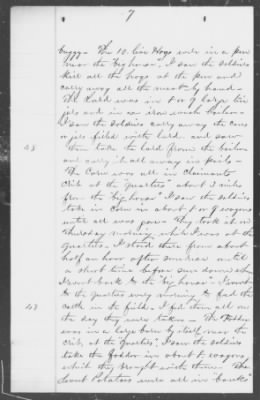 7
buggy — The 10 live Hogs were in a pen
near the "big house", I saw the soldiers
kill all the hogs at the pen and
carry away all the meat by hand —
The Lard was in 6 or 7 large tin
jars and in an iron wash boiler —
I saw the soldiers carry away the cans
or jars filled with lard and saw
them take the lard from the boiler
and carry it all away in pails —
The Corn was all in claimants
Crib at the quarters" about 3 miles
from the "big house" I saw the soldiers
take in Corn in about 7 or 8 wagons
until all was gone — They took it on
Thursday morning while I was at the
quarters — I stood there from about
half an hour after sunrise until
a short time before sun down when
I went back to the "big house" — I went
to the quarters every morning to feed the
cattle in the fields — I fed them all on
the day they were taken — The "Fodder"
was in a large barn by itself near the
Crib at the quarters; I saw the soldiers
take the fodder in about 6 wagons
which they brought with them — The
Sweet Potatoes were all in "banks"
48